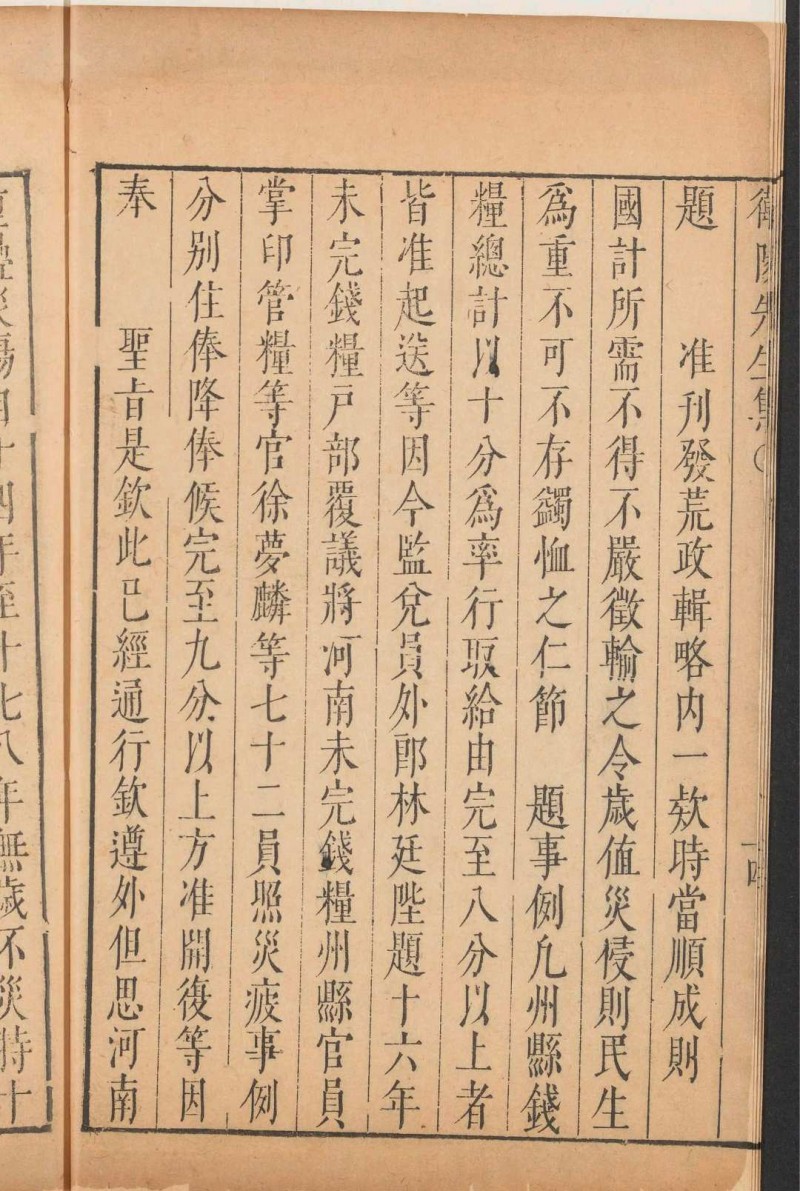 先生集
題　　准刊發荒政輯略内一欵時當順成則
國計所需不得不嚴徵輸之令歲值災侵則民生
爲重不可不存蠲恤之仁節　題事例凢州縣錢
糧總計以十分爲率行取給由完至八分以上者
皆准起送等因今監兌員外郎林廷陛題十六年
未完錢糧戸部覆議將河南未完錢糧州縣官員
掌印管糧等官徐夢麟等七十二員照災疲事例
分别住俸降俸候完至九分以上方准開復等因
奉　　聖旨是欽此已經通行欽遵外但思河南
四十四年至十七八年無歲不災時十